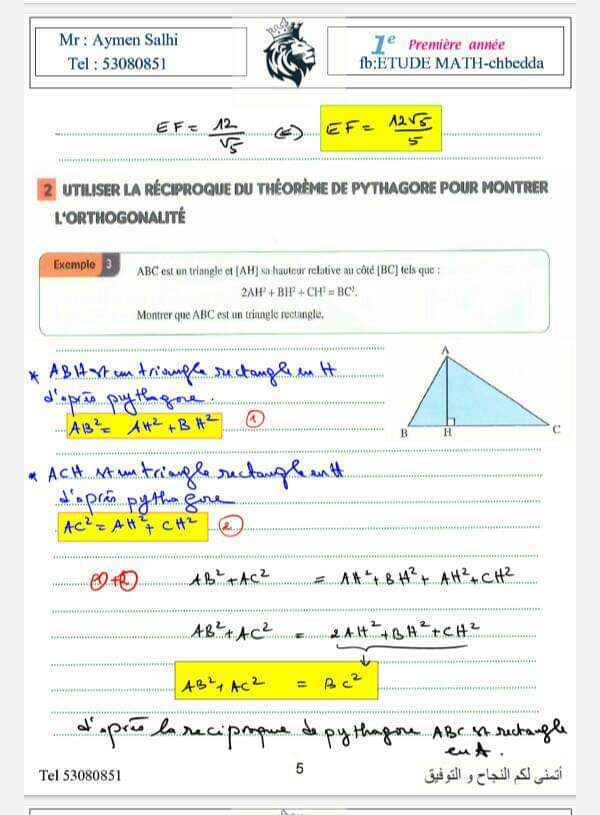 Mr : Aymen Salhi
Tel : 53080851
1e Première année
fb:ETUDE MATH-chbedda
EF = 12/√5 (=) EF = 12√5/5
2 UTILISER LA RÉCIPROQUE DU THÉORÈME DE PYTHAGORE POUR MONTRER
L'ORTHOGONALITÉ
Exemple 3
ABC est un triangle et [AH] sa hauteur relative au côté [BC] tels que :
2AH² + BH² + CH² = BC².
Montrer que ABC est un triangle rectangle.
A
B H C
* ABH est un triangle rectangle en H
d'après pythagore.
AB² = AH² + BH² 1
* ACH est un triangle rectangle en H
d'après pythagore
AC² = AH² + CH² 2
1+2 AB² + AC² = AH² + BH² + AH² + CH²
AB² + AC² = 2AH² + BH² + CH²
AB² + AC² = BC²
d'après la reciproque de pythagore ABC est rectangle
en A.
Tel 53080851
5
أتمنى لكم النجاح و التوفيق